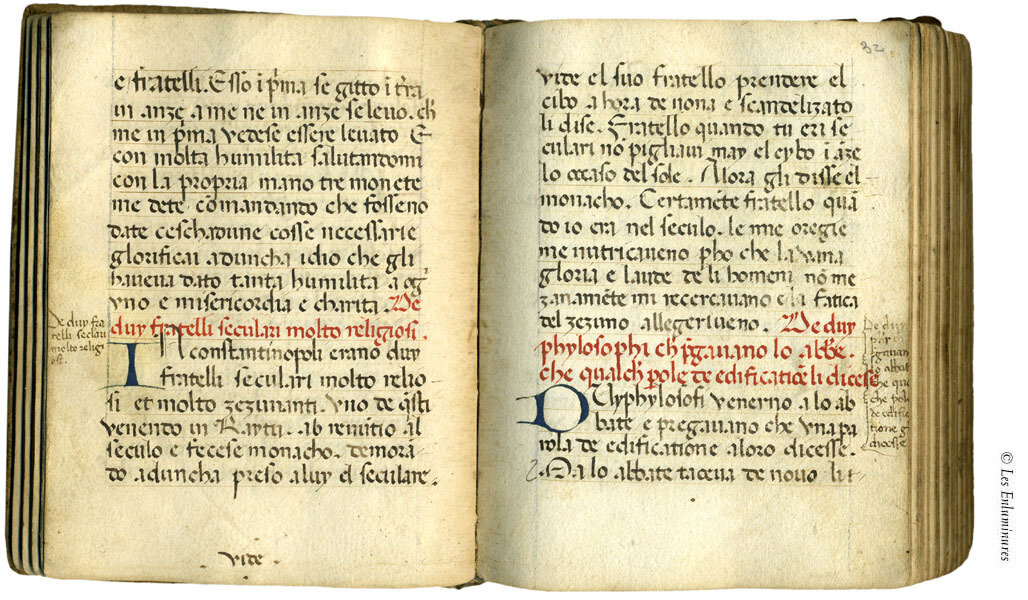 e fratelli. Esso ĩ pͥma se gitto ĩ tr̃a
in anze a me ne in anze se levo. ch̃
me in pͥma vedese essere levato E
con molta humilita salutandomi
con la propria mano tre monete
me dete cõmandando che fosseno
date ceschadune cosse necessarie
glorificai aduncha idio che gli
haueua dato tanta humilita a og
vno e misericordia e charita. De
duy fratelli seculari molto religiosi.
De duy fra
telli seclari
molto religi
osi.
IN constantinopoli erano duy
fratelli seculari molto relio
si et molto zezunanti. vno de q̃sti
venendo in Raytu. ab renũtio al
seculo e fecese monacho. demora
do aduncha preso aluy el seculare.
vide
32
vide el suo fratello prendere el
cibo a hora de nona e scandelizato
li dise. Fratello quando tu eri se
culari nõ pigliaui may el cybo ĩ ãze
lo occaso del sole. Alora gli disse el
monacho. Certamẽte fratello quã
do io eri nel seculo. le mie oregie
me nutricaueno pho che la vana
gloria e laude de li homeni nõ me
zanamẽte mi recercauano e la fatica
del zezuno allegeriueno. De duy
phylosophi ch̃ p̃gauano lo abbe.
che qualch̃ pole de edificatiõe li dicese
De duy
gauan
lo abbat
che qu
che pol
de edific
tione g
dicesse
DUy phylosofi venerno a lo ab
bate e pregauano che vna pa
rola de edificatione aloro dicesse.
Ma lo abbate taceua de nouo li